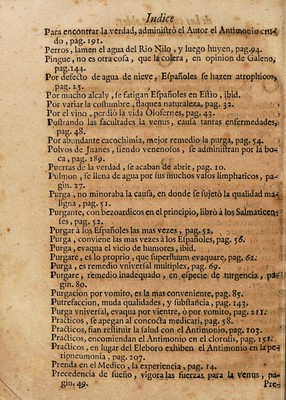 Indice
Para encontrar la verdad, administrò el Autor el Antimonio cru-
do, pag. 191.
Perros, lamen el agua del Rio Nilo, y luego huyen, pag.94.
Pingue, no es otra cosa, que la colera, en opinion de Galeno,
pag.144.
Por defecto de agua de nieve, Españoles se hazen atrophicos,
pag. 25.
Por mucho alcaly, se fatigan Españoles en Estio, ibid.
Por variar la costumbre, flaquea naturaleza, pag. 32.
Por el vino, perdiò la vida Olofernes, pag. 43.
Postrando las facultades la venus, causa tantas enfermedades,
pag. 48.
Por abundante cacochimia, mejor remedio la purga, pag. 54.
Polvos de Juanes, siendo venenosos, se administran por la bo-
ca, pag. 189.
Puertas de la verdad, se acaban de abrir, pag. 10.
Pulmon, se llena de agua por sus muchos vasos limphaticos, pa-
gin. 27.
Purga, no minoraba la causa, en donde se sujetò la qualidad ma-
ligna, pag. 51.
Purgante, con bezoardicos en el principio, librò à los Salmaticen-
ses, pag. 52.
Purgar à los Españoles las mas vezes, pag. 52.
Purga, conviene las mas vezes à los Españoles, pag. 56.
Purga, evaqua el vicio de humores, ibid.
Purgare, es lo proprio, que superfluum evaquare, pag. 61.
Purga, es remedio vniversal multiplex, pag. 69.
Purgare, remedio inadequado, en especie de turgencia, pa-
gin. 80.
Purgacion por vomito, es la mas conveniente, pag. 85.
Putrefaccion, muda qualidades, y substancia, pag. 143.
Purga vniversal, evaqua por vientre, ò por vomito, pag. 211.
Practicos, se apegan al concocta medicari, pag. 58.
Practicos, fian restituir la salud con el Antimonio, pag. 103.
Practicos, encomiendan el Antimonio en el clorosis, pag. 151.
Practicos, en lugar del Eleboro exhiben el Antimonio en la pe-
ripneumonia, pag. 207.
Prenda en el Medico, la experiencia, pag. 14.
Precedencia de sueño, vigora las fuerzas para la venus, pa-
gin. 49.
Pre-